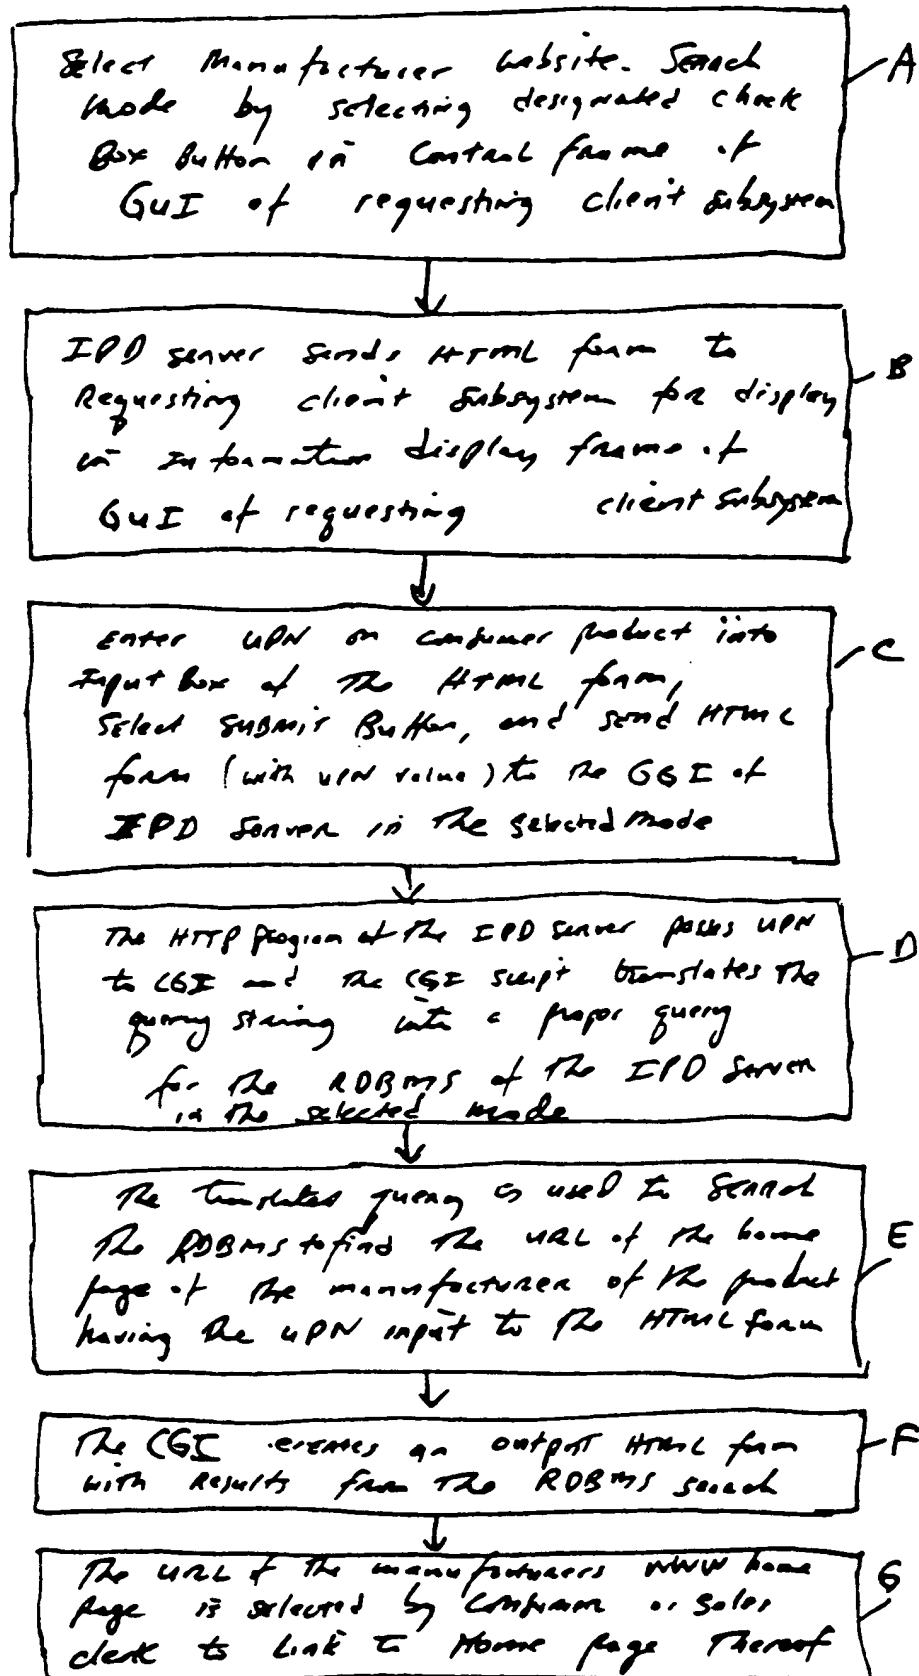 Select Manufacturer Website. Search
mode by selecting designated check
Box Button in Control frame of
GUI of requesting client subsystem
A
IPD server sends HTML form to
Requesting client subsystem for display
in Information display frame of
GUI of requesting client subsystem
B
Enter UPN on consumer product into
Input Box of the HTML form,
Select SUBMIT Button, and send HTML
form (with UPN value) to the GGI of
IPD Server in the selected mode
C
The HTTP program at the IPD server passes UPN
to CGI and the CGI script translates the
query string into a proper query
for the RDBMS of the IPD Server
in the selected mode
D
The translated query is used to Search
The RDBMS to find the URL of the home
page of the manufacturer of the product
having the UPN input to the HTML form
E
The CGI creates an output HTML form
with Results from the RDBMS search
F
The URL of the manufacturers WWW home
Page is selected by Consumer or Sales
clerk to Link to Home page Thereof
G